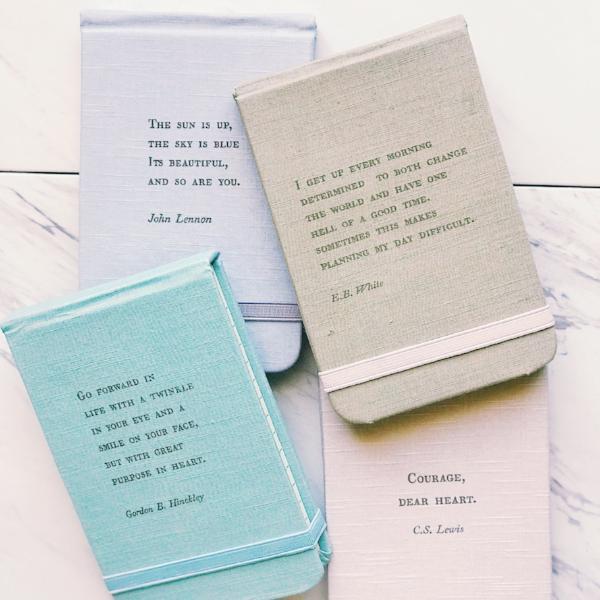 THE SUN IS UP,
THE SKY IS BLUE
ITS BEAUTIFUL,
AND SO ARE YOU.
John Lennon
I GET UP EVERY MORNING
DETERMINED TO BOTH CHANGE
THE WORLD AND HAVE ONE
HELL OF A GOOD TIME.
SOMETIMES THIS MAKES
PLANNING MY DAY DIFFICULT.
E.B. White
GO FORWARD IN
LIFE WITH A TWINKLE
IN YOUR EYE AND A
SMILE ON YOUR FACE,
BUT WITH GREAT
PURPOSE IN HEART.
Gordon B. Hinckley
COURAGE,
DEAR HEART.
C.S. Lewis